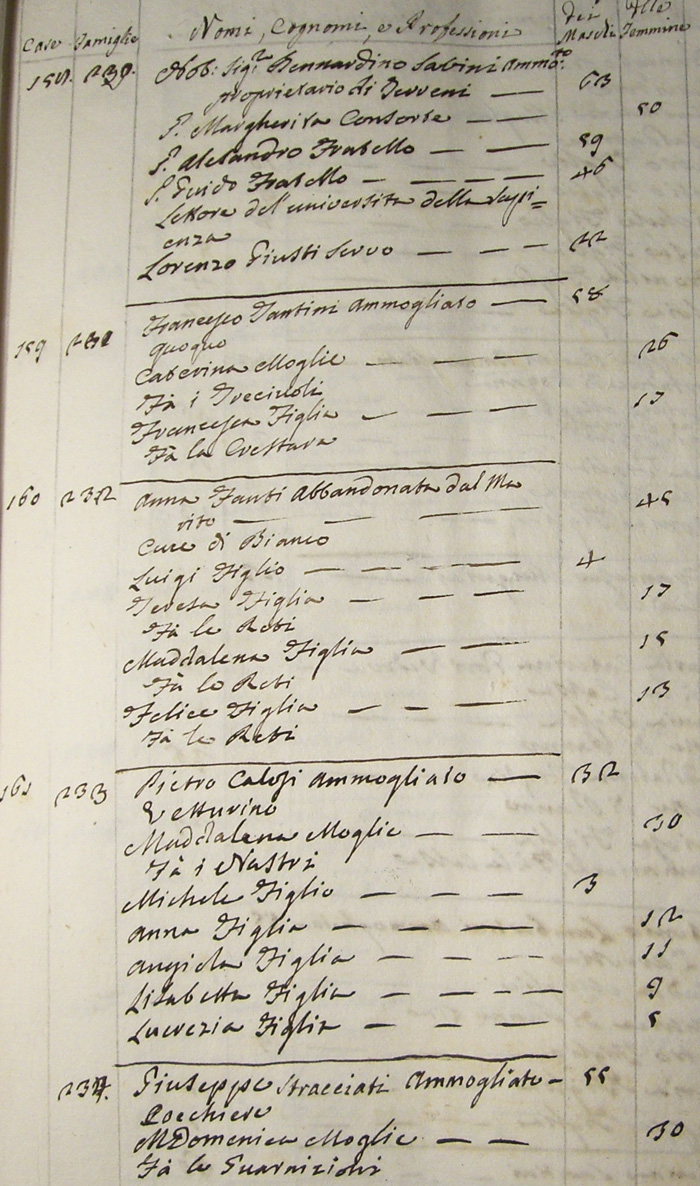 Case Famiglie Nomi, Cognomi, e Professioni dei Maschi delle Femmine
158. 230. Nob: Sig.r Bennardino Sabini Ammo.to
proprietario di Terreni — 63
S. Margherita Consorte — — 50
S. Alesandro Fratello — — 59
S. Guido Fratello — — — — 46
Lettore del'università della Sapi=
enza
Lorenzo Giusti Servo — — — 22
159 231 Francesco Santini Ammogliato — 58
Quoquo
Caterina Moglie — — — 26
Fà i Trecicoli
Francesca Figlia — — — 17
Fà la Crestara
160 232 Anna Fanti Abbandonata dal Ma
rito — — — 45
Cuce di Bianco
Luigi Figlio — — — — 4
Teresa Figlia — — — 17
Fà le Reti
Maddalena Figlia — — 15
Fà le Reti
Felice Figlia — — — 13
Fà le Reti
161 233 Pietro Calosi Ammogliato — 32
Vetturino
Maddalena Moglie — — 30
Fà i Nastri
Michele Figlio — — — — 3
Anna Figlia — — — — 12
Angiola Figlia — — — — 11
Lisabetta Figlia — — — — 9
Lucrezia Figlia — — — — 5
234. Giuseppe Stracciati Ammogliato — 55
Cocchiere
M Domenica Moglie — — 30
Fà le Guarnizioni